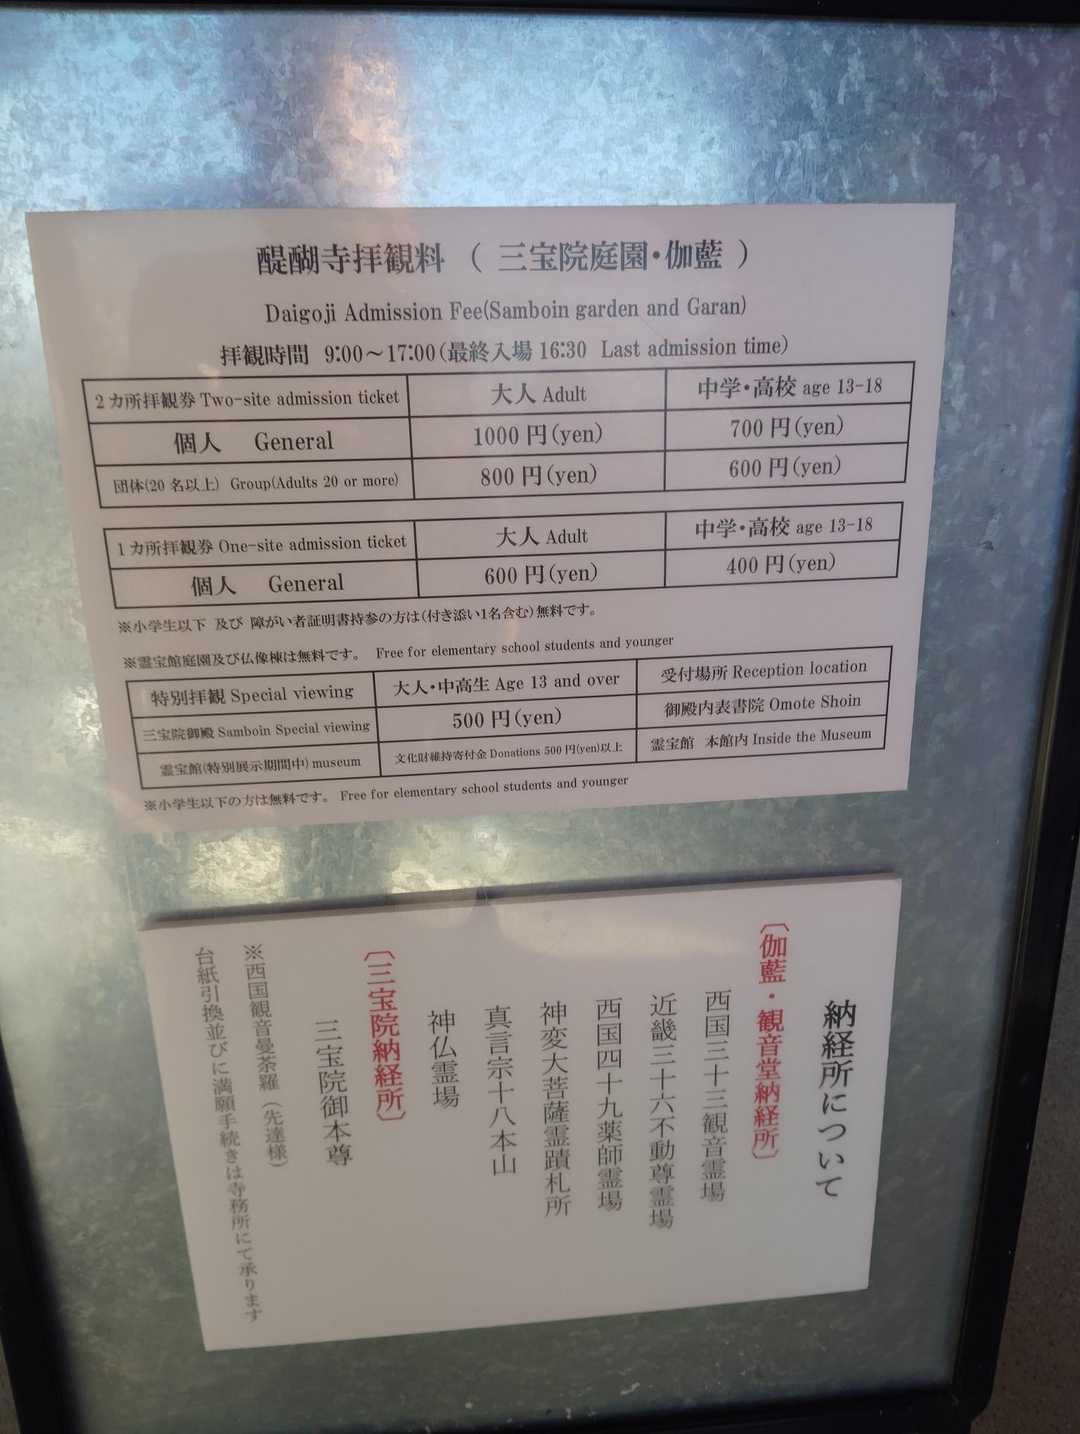 醍醐寺拝観料 （ 三宝院庭園・伽藍 ）
Daigoji Admission Fee(Samboin garden and Garan)
拝観時間 9:00～17:00(最終入場 16:30 Last admission time)
2カ所拝観券 Two-site admission ticket 大人 Adult 中学・高校 age 13-18
個人 General 1000円(yen) 700円(yen)
団体(20名以上) Group(Adults 20 or more) 800円(yen) 600円(yen)
1カ所拝観券 One-site admission ticket 大人 Adult 中学・高校 age 13-18
個人 General 600円(yen) 400円(yen)
※小学生以下 及び 障がい者証明書持参の方は(付き添い1名含む)無料です。
※霊宝館庭園及び仏像棟は無料です。 Free for elementary school students and younger
特別拝観 Special viewing 大人・中高生 Age 13 and over 受付場所 Reception location
三宝院御殿 Samboin Special viewing 500円(yen) 御殿内表書院 Omote Shoin
霊宝館(特別展示期間中) museum 文化財維持寄付金 Donations 500円(yen)以上 霊宝館 本館内 Inside the Museum
※小学生以下の方は無料です。 Free for elementary school students and younger
納経所について
〔伽藍・観音堂納経所〕
西国三十三観音霊場
近畿三十六不動尊霊場
西国四十九薬師霊場
神変大菩薩霊蹟札所
真言宗十八本山
神仏霊場
〔三宝院納経所〕
三宝院御本尊
※西国観音曼荼羅（先達様）
台紙引換並びに満願手続きは寺務所にて承ります